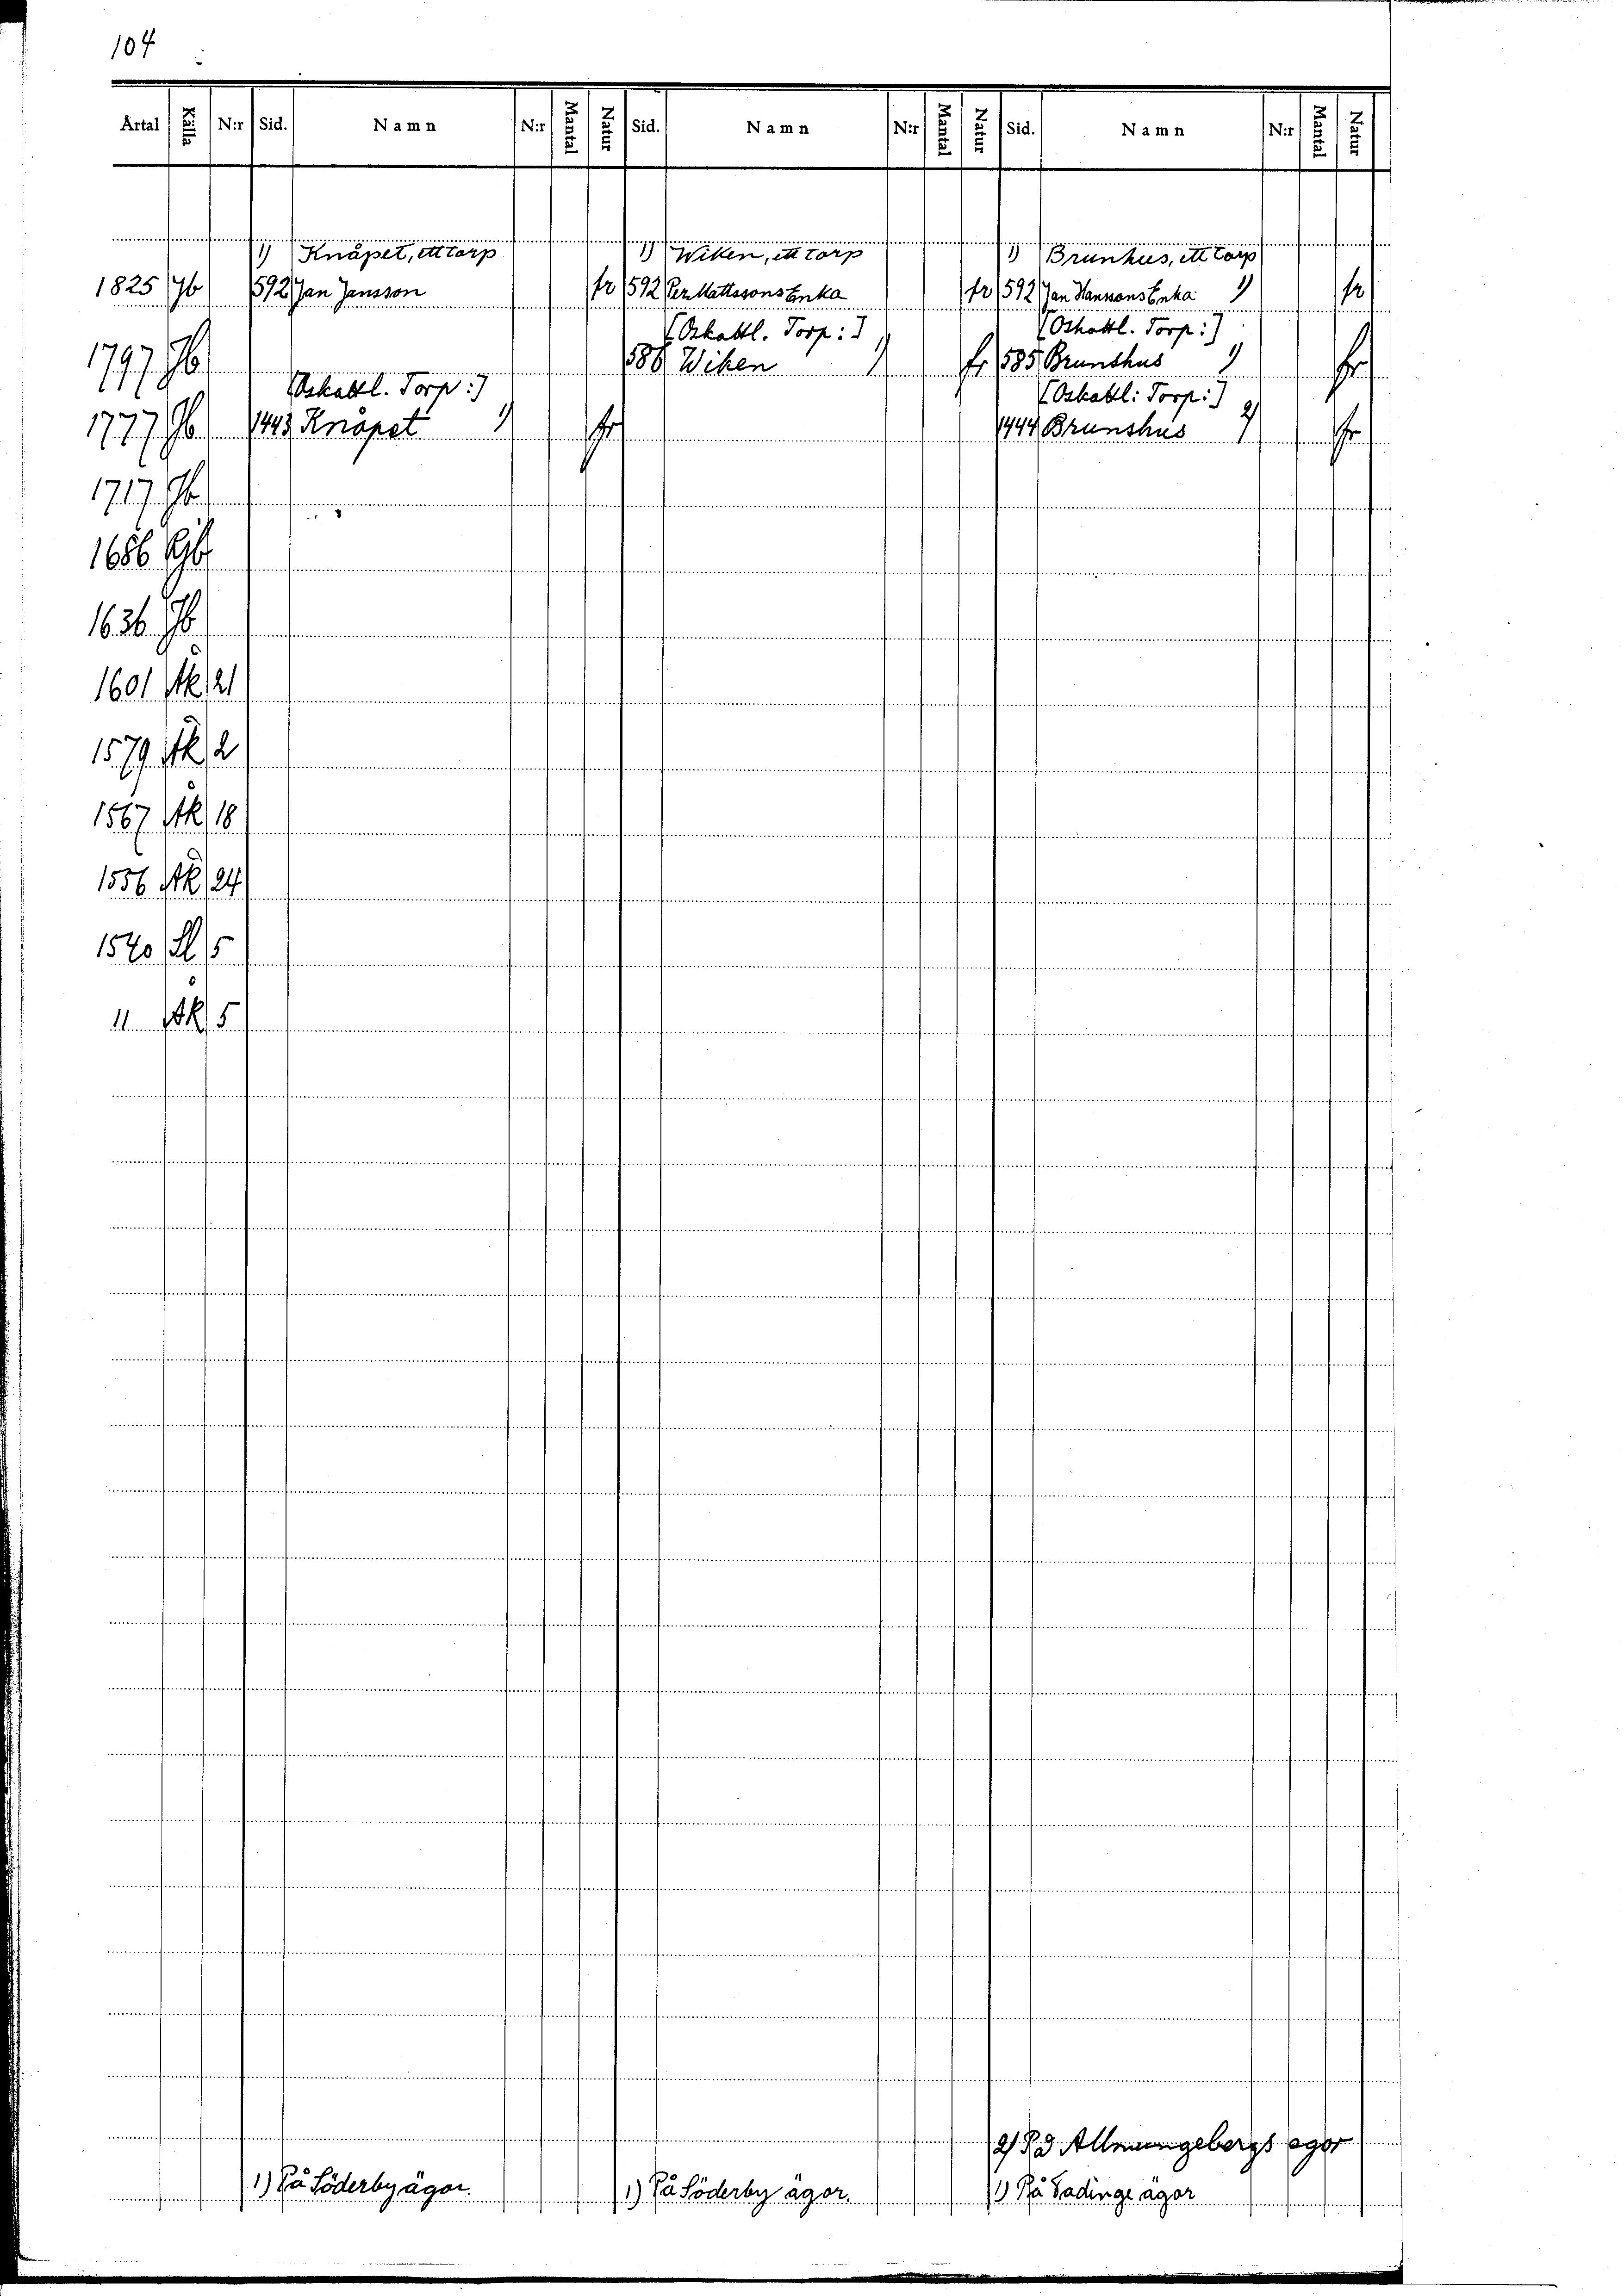 104
Årtal Källa N:r Sid. Namn N:r Mantal Natur Sid. Namn N:r Mantal Natur Sid. Namn N:r Mantal Natur
1) Knåpet, ett torp 1) Wiken, ett torp 1) Brunhus, ett torp
1825 Jb 592 Jan Jansson fr 592 Per Mattssons Enka fr 592 Jan Hanssons Enka 1) fr
[Oskattl. Torp:] [Oskattl. Torp:]
1797 Jb 586 Wiken 1) fr 585 Brunshus 1) fr
[Oskattl. Torp:] [Oskattl: Torp:]
1777 Jb 1443 Knåpet 1) fr 1444 Brunshus 2) fr
1717 Jb
1686 Jb
1636 Jb
1601 Åk 21
1579 Åk 2
1567 Åk 18
1556 Åk 24
1540 Sl 5
11 Åk 5
2) På ägor
1) På Söderby ägor. 1) På Söderby ägor. 1) På Ladinge ägor